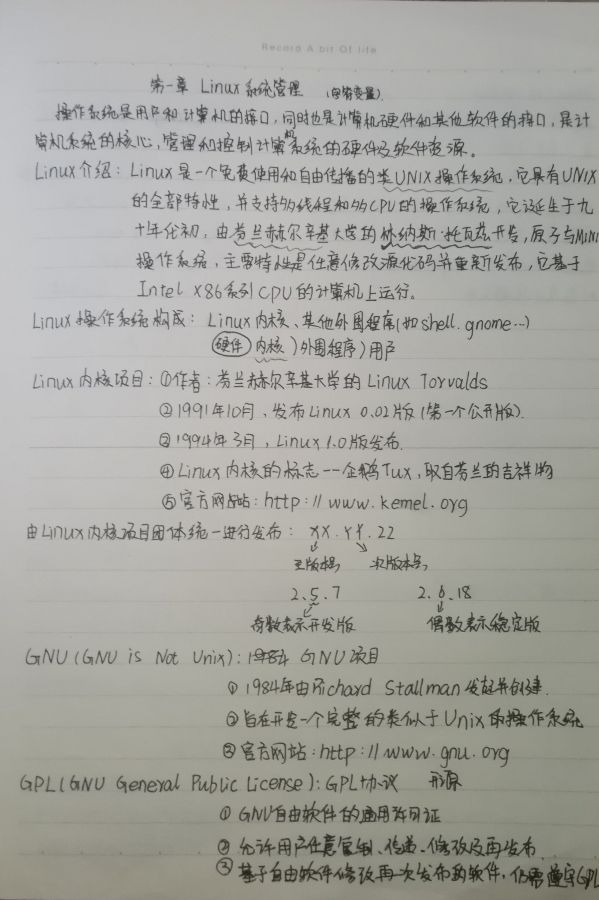 Record A bit Of life
第一章 Linux 系统管理 (
操作系统是用户和计算机的接口,同时也是计算机硬件和其他软件的接口,是计
算机系统的核心,管理和控制计算机系统的硬件及软件资源。
Linux介绍:Linux是一个免费使用和自由传播的类UNIX操作系统,它具有UNIX
的全部特性,并支持多线程和多CPU的操作系统,它诞生于九
十年代初,由芬兰赫尔辛基大学的林纳斯·托瓦兹开发,原于与MiNi
操作系统,主要特性是任意修改源代码并重新发布,它基于
Intel X86系列CPU的计算机上运行。
Linux操作系统构成:Linux内核、其他外围程序(如shell.gnome…)
硬件)内核)外围程序)用户
Linux内核项目:①作者:芬兰赫尔辛基大学的Linux Torvalds
②1991年10月、发布Linux 0.02版(第一个公开版).
③1994年3月,Linux 1.0版发布.
④Linux内核的标志--企鹅Tux,取自芬兰的吉祥物
⑤官方网站:http://www.kernel.org
由Linux内核项目团体统一进行发布:XX.YY.22
主版本号 次版本号
2.5.7 2.6.18
奇数表示开发版 偶数表示稳定版
GNU(GNU is Not Unix):1984 GNU项目
①1984年由Richard Stallman发起并创建.
②旨在开发一个完整的类似于Unix的操作系统
③官方网站:http://www.gnu.org
GPL(GNU General Public License):GPL协议 开源
①GNU自由软件的通用许可证
②允许用户任意复制、传递、修改及再发布
③基于自由软件修改再次发布的软件,仍需遵守GPL